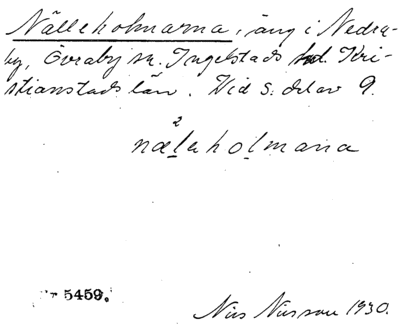 Nälleholmarna, äng i Nedra-
by, Övraby sn. Ingelstads hd. Kri-
stianstads län. Vid s. del av 9.
2
næleholmana
5459.
Nils Nilsson 1930.